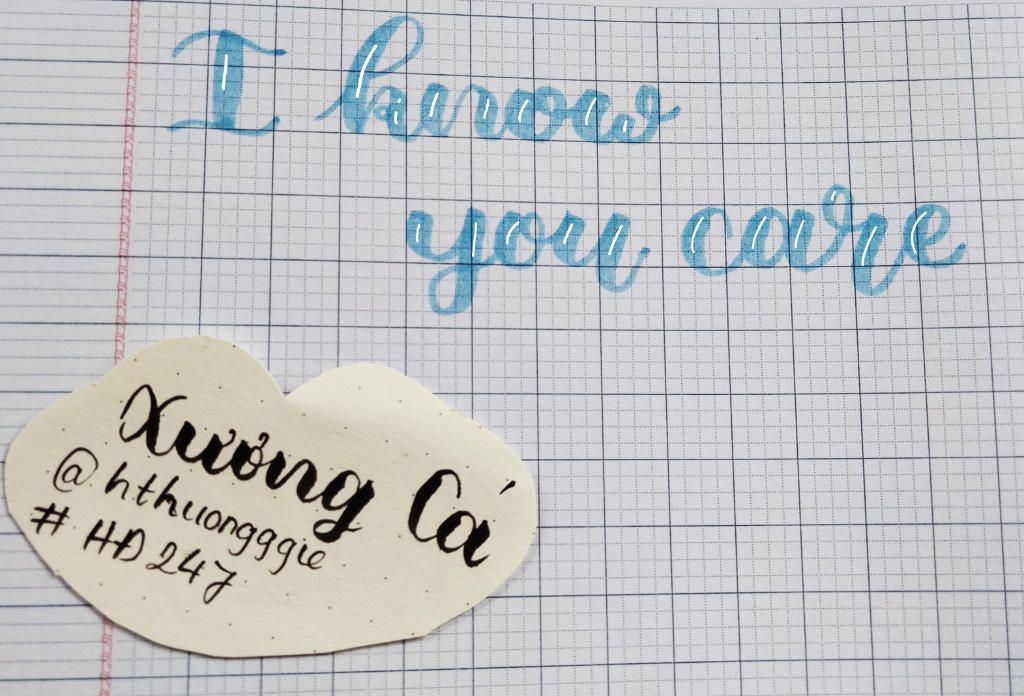 I know
you care
Xương Cá
@hthuongggie
# HD247